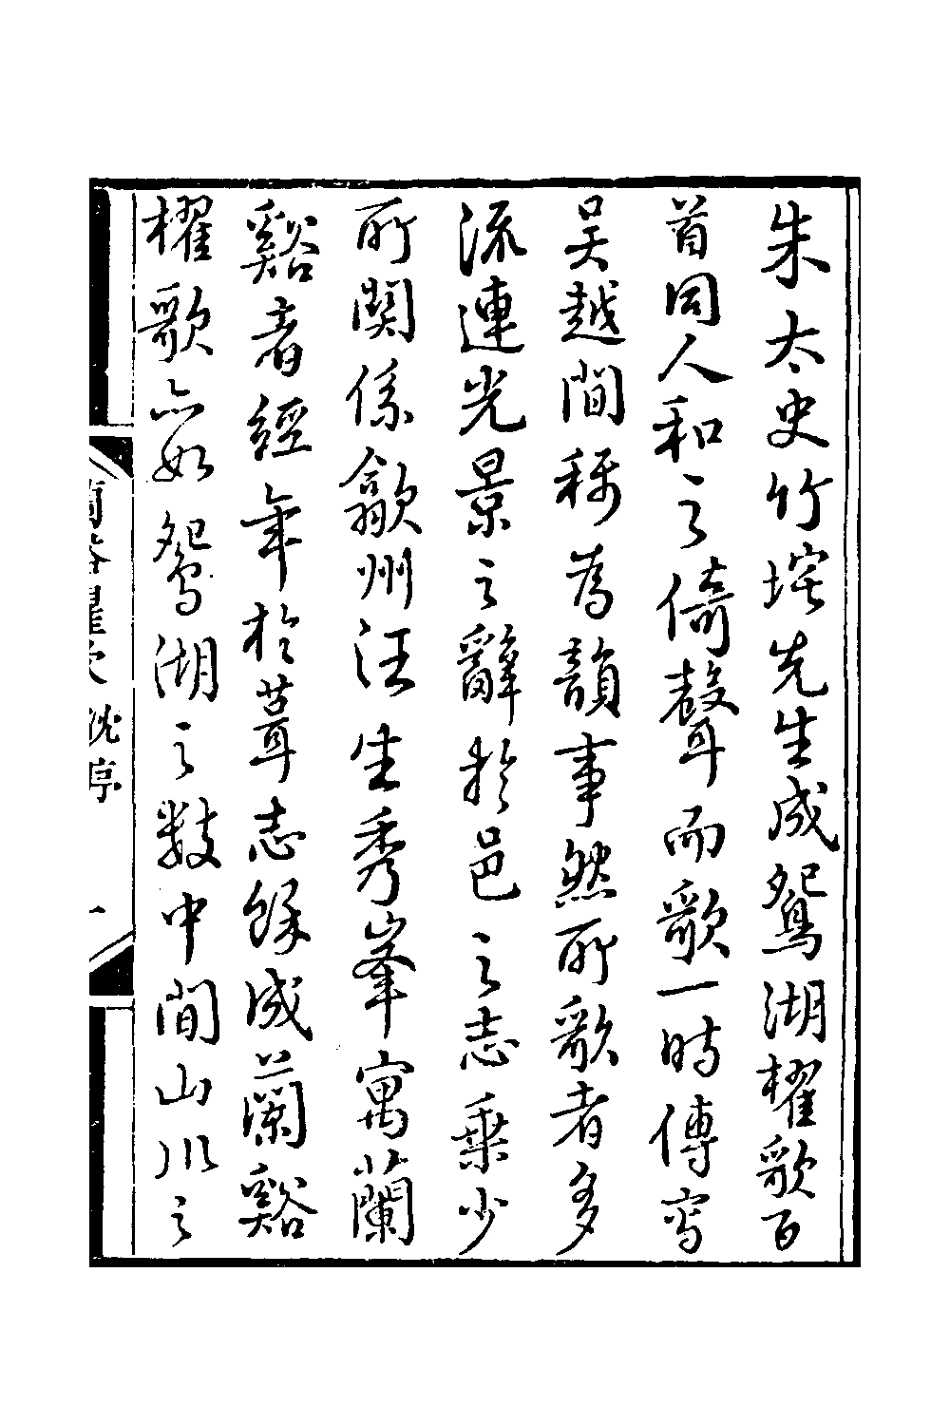 朱太史竹垞先生成鴛湖櫂歌百
首同人和之倚聲而歌一時傳寫
吴越間稱為韻事然所歌者多
流連光景之辭於邑之志乘少
所関係歙州汪生秀峯寓蘭
谿者經年於葺志餘成蘭谿
櫂歌亦如鴛湖之数中間山川之
蘭谿櫂歌 沈序 一